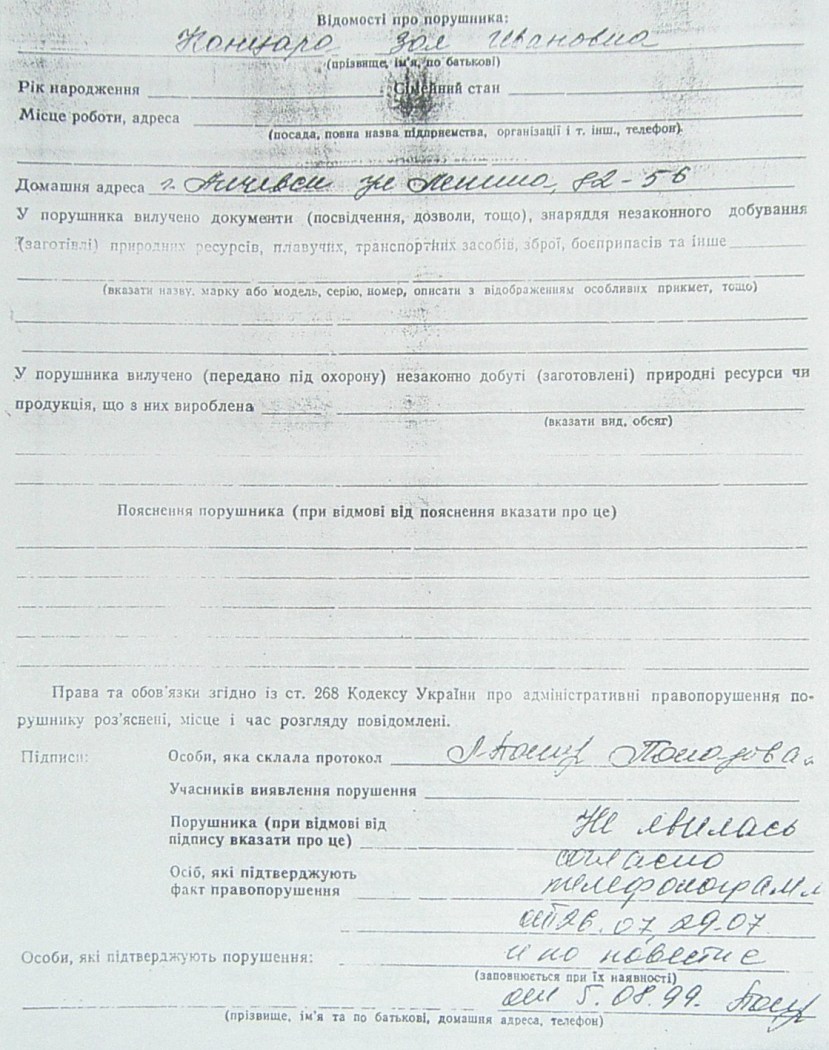 Відомості про порушника:
Зоя Ивановна
(прізвище, ім'я, по батькові)
Рік народження Сімейний стан
Місце роботи, адреса
(посада, повна назва підприємства, організації і т. інш., телефон).
Домашня адреса г. ул Ленина, 82-56
У порушника вилучено документи (посвідчення, дозволи, тощо), знаряддя незаконного добування
(заготівлі) природних ресурсів, плавучих, транспортних засобів, зброї, боєприпасів та інше
(вказати назву, марку або модель, серію, номер, описати з відображенням особливих прикмет, тощо)
У порушника вилучено (передано під охорону) незаконно добуті (заготовлені) природні ресурси чи
продукція, що з них вироблена
(вказати вид, обсяг)
Пояснення порушника (при відмові від пояснення вказати про це)
Права та обов'язки згідно із ст. 268 Кодексу України про адміністративні правопорушення по-
рушнику роз'яснені, місце і час розгляду повідомлені.
Підписи: Особи, яка склала протокол
Учасників виявлення порушення
Порушника (при відмові від
підпису вказати про це) Не явилась
согласно
Осіб, які підтверджують
факт правопорушення телефонограмм
от 26.07, 29.07
Особи, які підтверджують порушення: и по повестке
(заповнюється при їх наявності)
от 5.08.99.
(прізвище, ім'я та по батькові, домашня адреса, телефон)